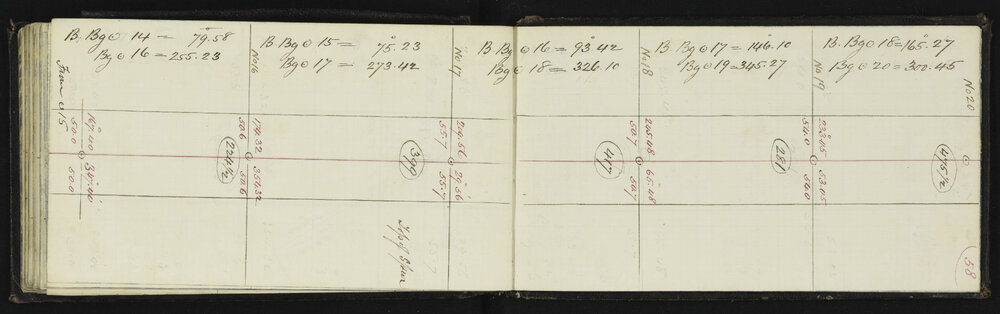 B. Bg ⊙ 14 = 79.58
Bg ⊙ 16 = 255.23
B. Bg ⊙ 15 = 75.23
Bg ⊙ 17 = 273.42
B. Bg ⊙ 16 = 93.42
Bg ⊙ 18 = 326.10
B. Bg ⊙ 17 = 146.10
Bg ⊙ 19 = 345.27
B. Bg ⊙ 18 = 165.27
Bg ⊙ 20 = 300.45
From ⊙ 15
No 16
No 17
No 18
No 19
No 20
167.40
50.0
50.0
174.32
50.6
354.32
50.6
55.7
29.56
55.7
245.48
50.7
65.48
50.7
233.05
54.0
53.05
54.0
224½
399
417
281
475½
Top of Spur
58